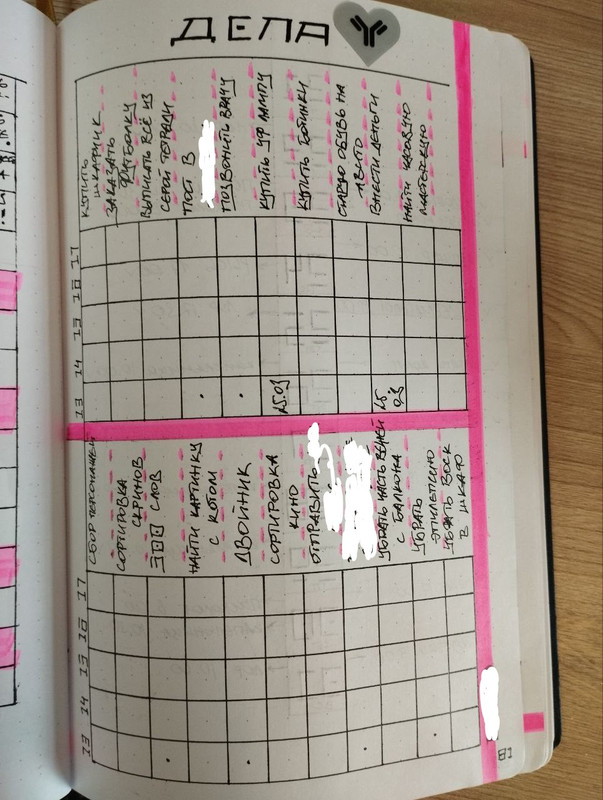 ДЕЛА
КУПИТЬ
ШКАФЧИК
ЗАКАЗАТЬ
ФУТБОЛКУ
ВЫПИСАТЬ ВСЁ ИЗ
СЕРОЙ ТЕТРАДИ
ПОСТ В
ПОЗВОНИТЬ ВРАЧУ
КУПИТЬ УФ ЛАМПУ
КУПИТЬ БОТИНКИ
СТАВЛЮ ОБУВЬ НА
АВИТО
ВНЕСТИ ДЕНЬГИ
НАЙТИ ЧАСОВУЮ
МАСТЕРСКУЮ
13 14 15 16 17
15.03
15
03
СБОР ПЕРСОНАЖЕЙ
СОРТИРОВКА
СКРИНОВ
300 СЛОВ
НАЙТИ КАРТИНКУ
С КОТОМ
ДВОЙНИК
СОРТИРОВКА
КИНО
ОТПРАВИТЬ
УБРАТЬ ЧАСТЬ ВЕЩЕЙ
С БАЛКОНА
УБРАТЬ
УБРАТЬ ВОСК
В ШКАФ
13 14 15 16 17
81